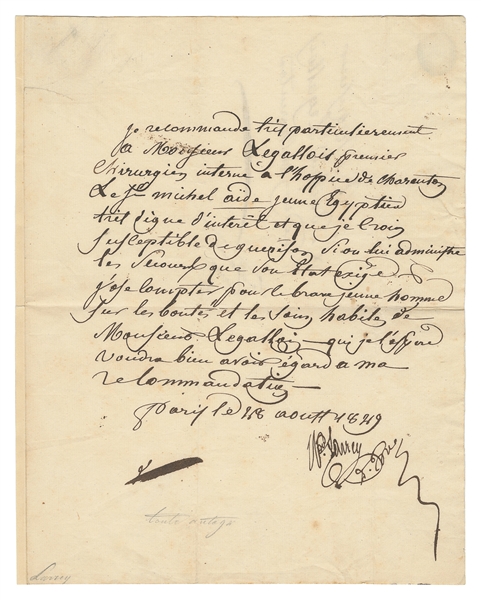 je recommande très particulierement
a Monsieur Legallois premier
chirurgien interne a l'hospice de charenton
Le Sr michel aïde jeune Egyptien
très digne d'interêt et que je crois
susceptible de guerison si on lui administre
les secours que son Etat exige
j'ose compter pour le brave jeune homme
sur les bontés et les soins habils de
Monsieur Legallois qui je l'espère
voudra bien avoir égard a ma
recommandation
paris le 18 aoust 1829
Larrey
Larrey